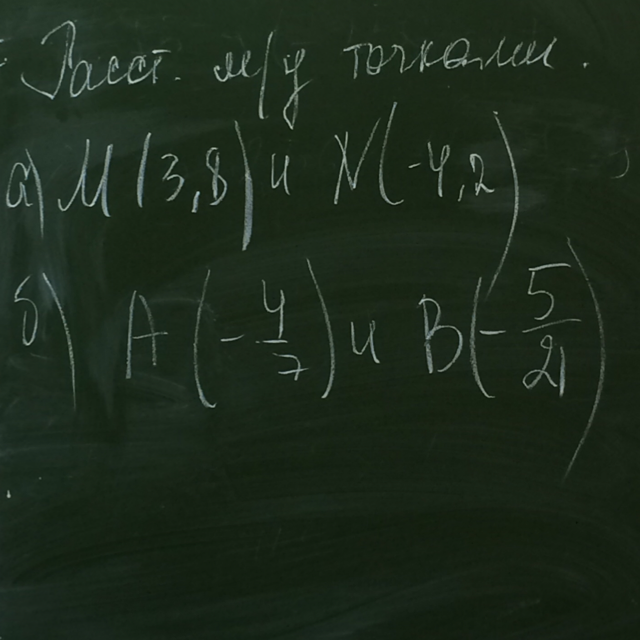 Расст. м/у точками.
а) M(3,8) и N(-4,2)
б) A(-4/7) и B(-5/21)